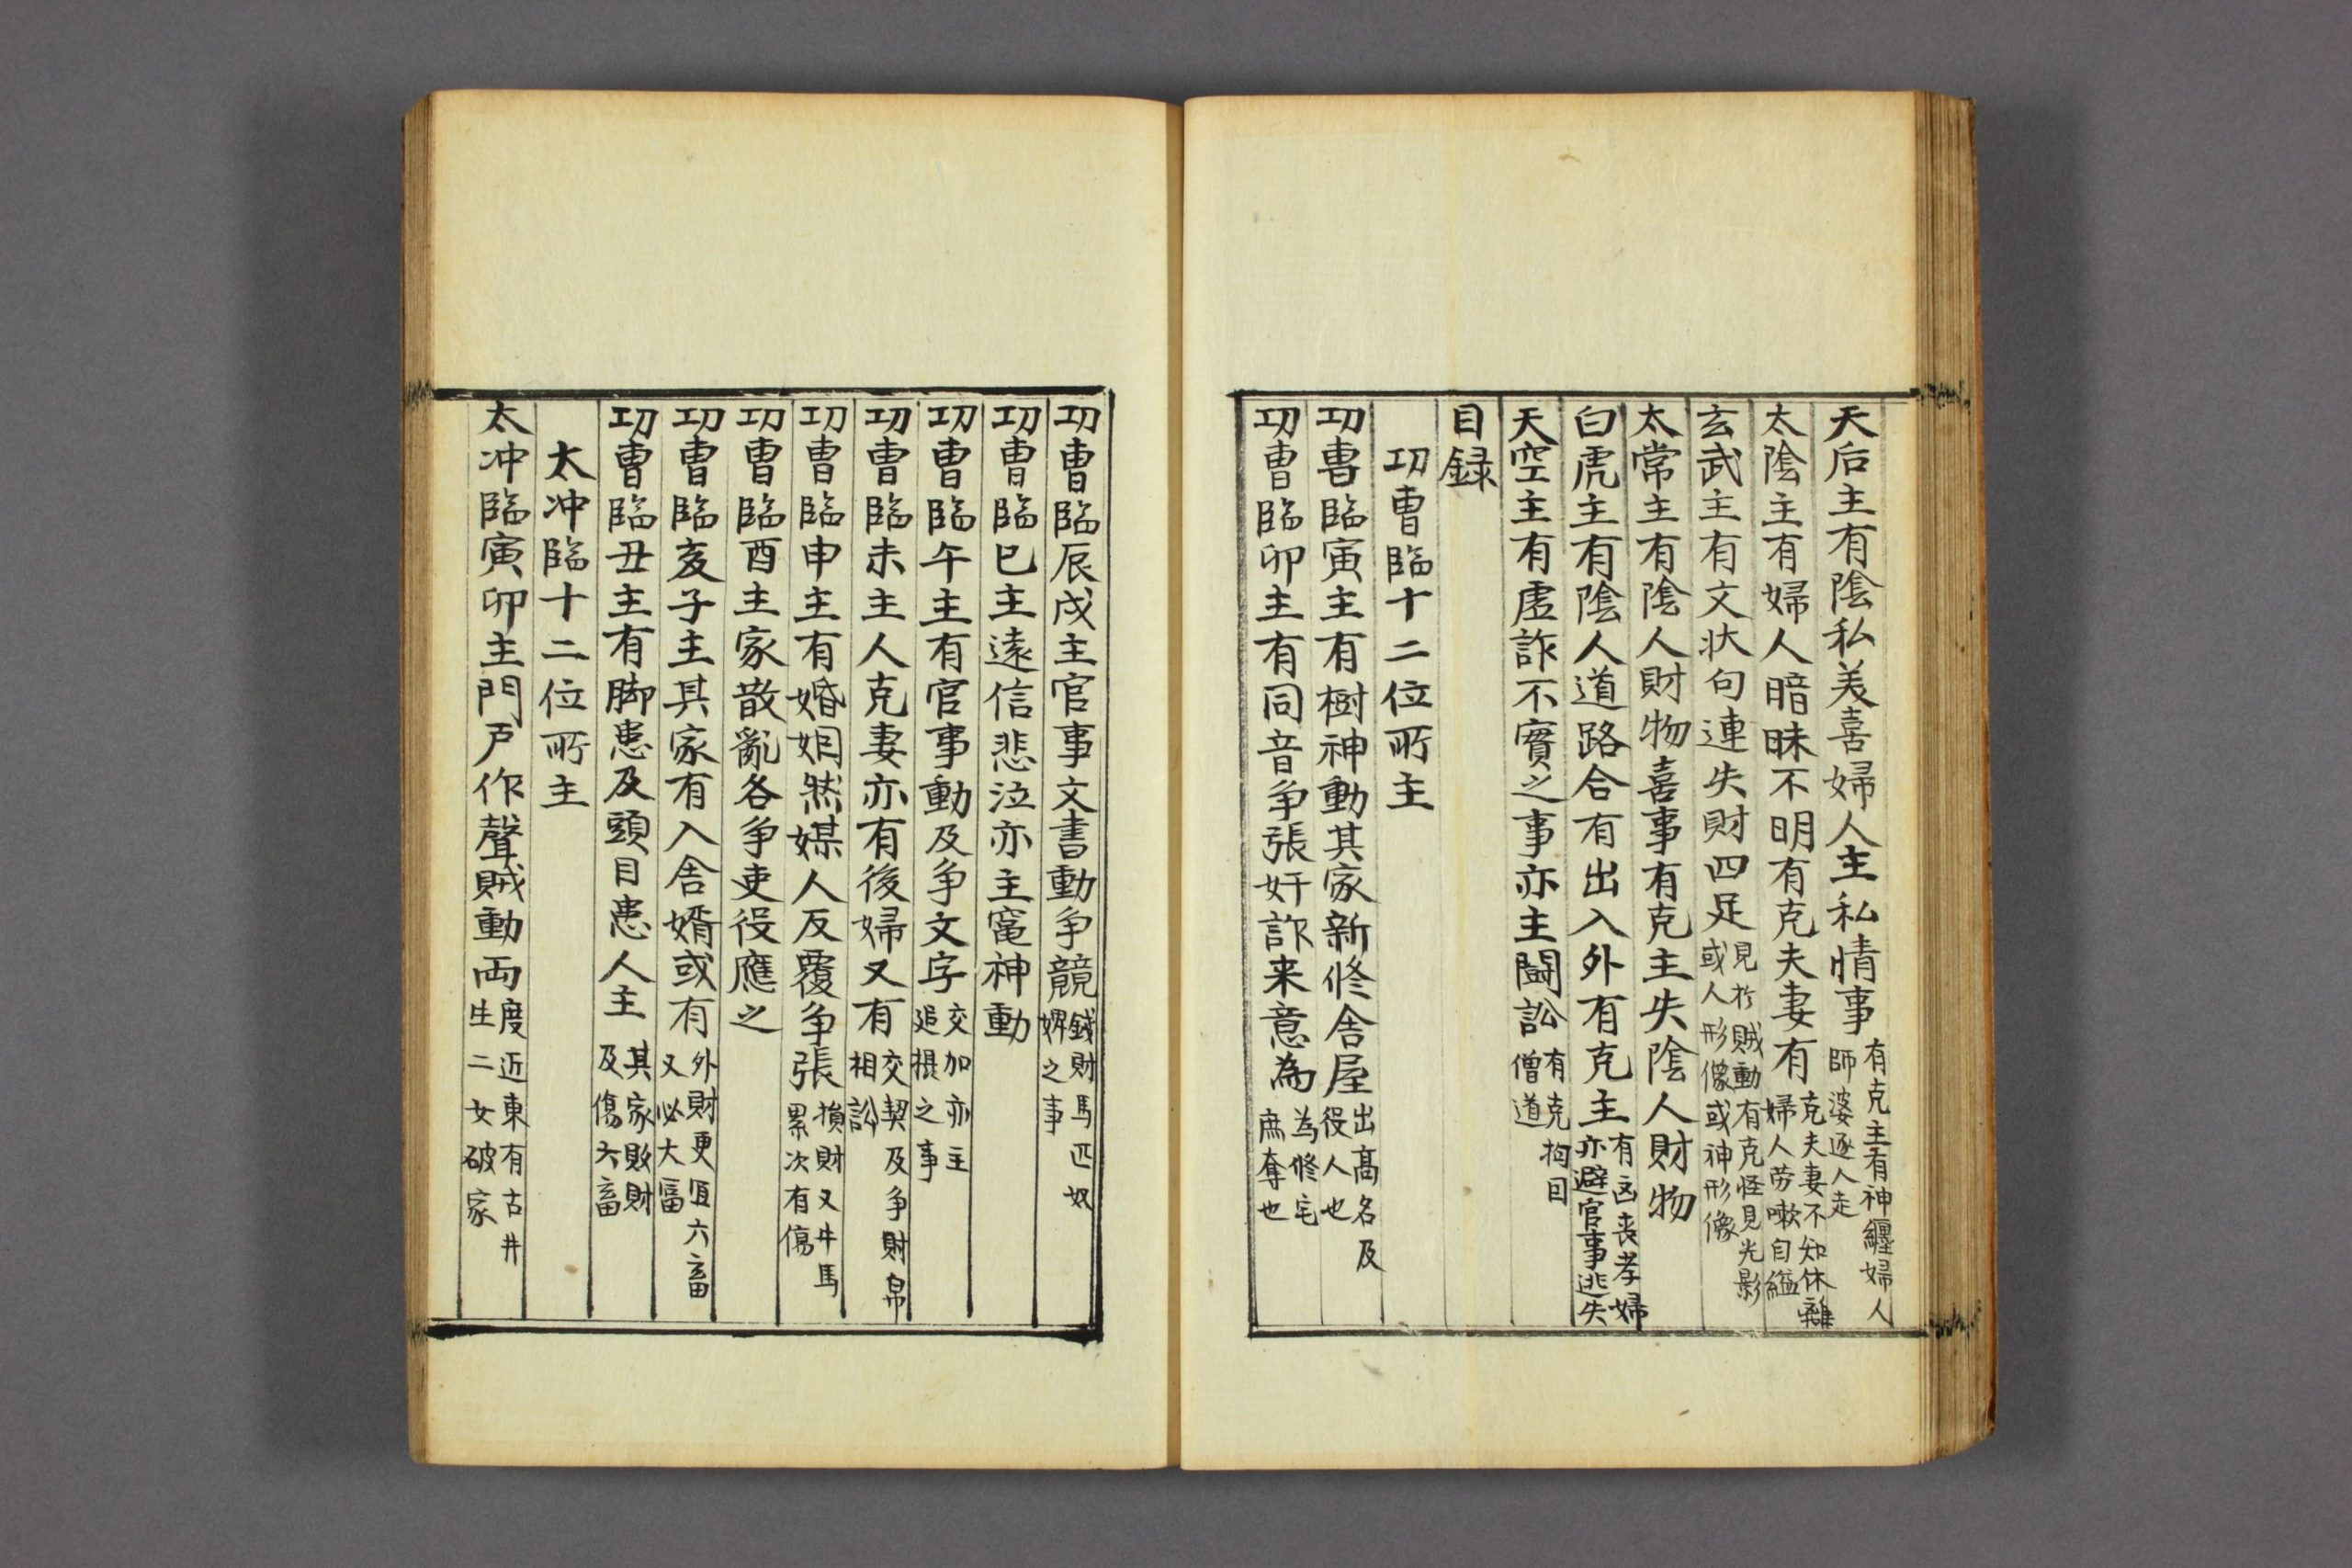 天后主有陰私美喜婦人主私情事有克主有神纒婦人師婆逐人走
太陰主有婦人暗昧不明有克夫妻有克夫妻不知休離婦人劳嗽自縊
玄武主有文狀句連失財四足見於賊動有克怪見光影或人形像或神形像
太常主有陰人財物喜事有克主失陰人財物
白虎主有陰人道路合有出入外有克主有凶丧孝婦亦避官事逃失
天空主有虛詐不實之事亦主鬪訟有克抅目僧道
目録
功曹臨十二位所主
功曹臨寅主有樹神動其家新修舍屋出髙名及役人也
功曹臨卯主有同音争張奸詐来意為為修宅庶奪也
功曹臨辰戌主官事文書動争競錢財馬匹奴婢之事
功曹臨巳主遠信悲泣亦主竈神動
功曹臨午主有官事動及争文字交加亦主追摂之事
功曹臨未主人克妻亦有後婦又有交契及争財帛相訟
功曹臨申主有婚姻然媒人反覆争張損財又牛馬累次有傷
功曹臨酉主家散亂各争吏役應之
功曹臨亥子主其家有入舍婿或有外財更宜六畜又必大富
功曹臨丑主有脚患及頭目患人主其家敗財及傷六畜
太冲臨十二位所主
太冲臨寅卯主門戸作聲賊動両度近東有古井生二女破家